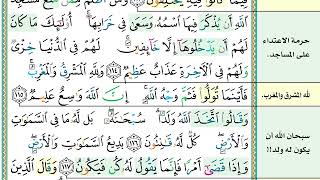 ٱللَّهِ أَن يُذْكَرَ فِيهَا ٱسْمُهُۥ وَسَعَىٰ فِى خَرَابِهَآ أُو۟لَٰٓئِكَ مَا كَانَ
لَهُمْ أَن يَدْخُلُوهَآ إِلَّا خَآئِفِينَ لَهُمْ فِى ٱلدُّنْيَا خِزْىٌ
وَلَهُمْ فِى ٱلْءَاخِرَةِ عَذَابٌ عَظِيمٌ ١١٤ وَلِلَّهِ ٱلْمَشْرِقُ وَٱلْمَغْرِبُ
فَأَيْنَمَا تُوَلُّوا۟ فَثَمَّ وَجْهُ ٱللَّهِ إِنَّ ٱللَّهَ وَٰسِعٌ عَلِيمٌ ١١٥
وَقَالُوا۟ ٱتَّخَذَ ٱللَّهُ وَلَدًا سُبْحَٰنَهُۥ بَل لَّهُۥ مَا فِى ٱلسَّمَٰوَٰتِ
وَٱلْأَرْضِ كُلٌّ لَّهُۥ قَٰنِتُونَ ١١٦ بَدِيعُ ٱلسَّمَٰوَٰتِ وَٱلْأَرْضِ
وَإِذَا قَضَىٰٓ أَمْرًا فَإِنَّمَا يَقُولُ لَهُۥ كُن فَيَكُونُ ١١٧ وَقَالَ ٱلَّذِينَ
حرمة الاعتداء
على المساجد.
لله المشرق والمغرب.
سبحان الله ان
يكون له ولد!!